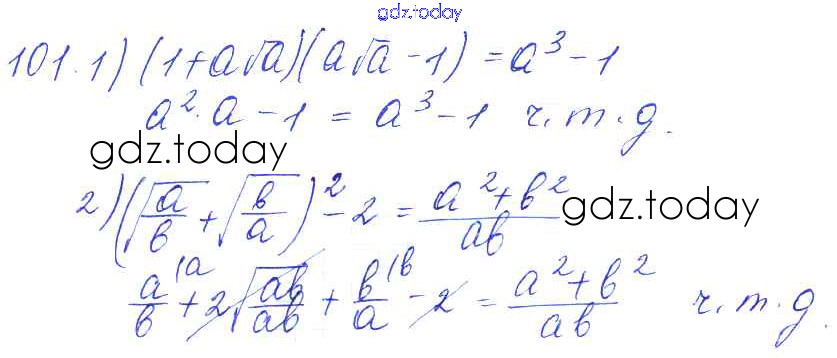 gdz.today
101. 1) (1+a√a)(a√a-1) = a³-1
a²·a-1 = a³-1 ч.т.д.
gdz.today
2) (√(a/b) + √(b/a))² - 2 = (a²+b²)/(ab)
gdz.today
a/b ⁽ᵃ + 2√(ab/ab) + b/a ⁽ᵇ - 2 = (a²+b²)/(ab) ч.т.д.